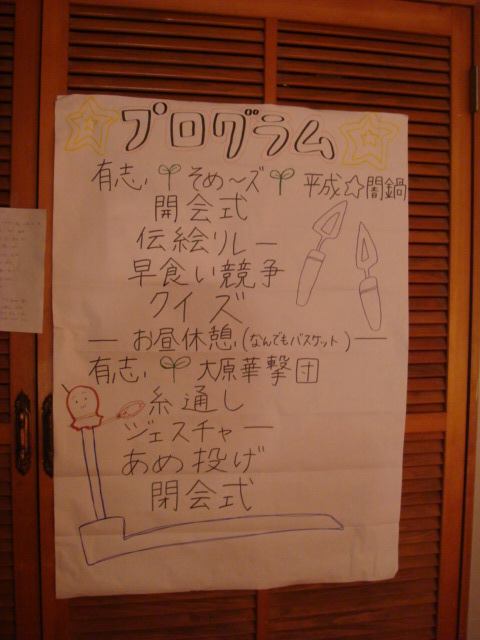 プログラム
有志 そめ〜ズ 平成☆闇鍋
開会式
伝絵リレー
早食い競争
クイズ
― お昼休憩(なんでもバスケット) ―
有志 大原華撃団
糸通し
ジェスチャー
あめ投げ
閉会式